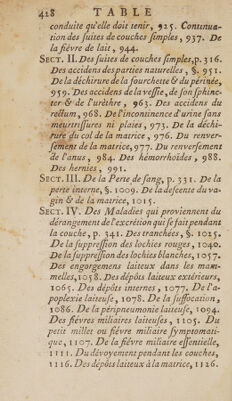 428 TABLE
conduite qu'elle doit tenir, 925. Continua-
tion des suites de couches simples, 937. De
la fiévre de lait, 944.
SECT. II. Des suites de couches simples, p. 316.
Des accidens des parties naturelles, §. 951.
De la déchirure de la fourchette & du périnée,
959. Des accidens de la vessie, de son sphinc-
ter & de l'uréthre, 963. Des accidens du
rectum, 968. De l'incontinence d'urine sans
meurtrissures ni plaies, 973. De la déchi-
rure du col de la matrice, 976. Du renver-
sement de la matrice, 977. Du renversement
de l'anus, 984. Des hémorrhoïdes, 988.
Des hernies, 991.
SECT. III. De la Perte de sang, p. 331. De la
perte interne, §. 1009. De la descente du va-
gin & de la matrice, 1015.
SECT. IV. Des Maladies qui proviennent du
dérangement de l'excrétion qui se fait pendant
la couche, p. 341. Des tranchées, §. 1025.
De la suppression des lochies rouges, 1040.
De la suppression des lochies blanches, 1057.
Des engorgemens laiteux dans les mam-
melles, 1058. Des dépôts laiteux extérieurs,
1065. Des dépôts internes, 1077. De l'a-
poplexie laiteuse, 1078. De la suffocation,
1086. De la péripneumonie laiteuse, 1094.
Des fiévres miliaires laiteuses, 1105. Du
petit millet ou fiévre miliaire symptomati-
que, 1107. De la fiévre miliaire essentielle,
1111. Du dévoyement pendant les couches,
1116. Des dépôts laiteux à la matrice, 1126.